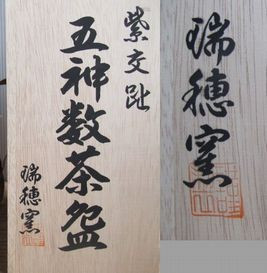 紫交趾
五神数茶盌
瑞穂窯
瑞穂窯